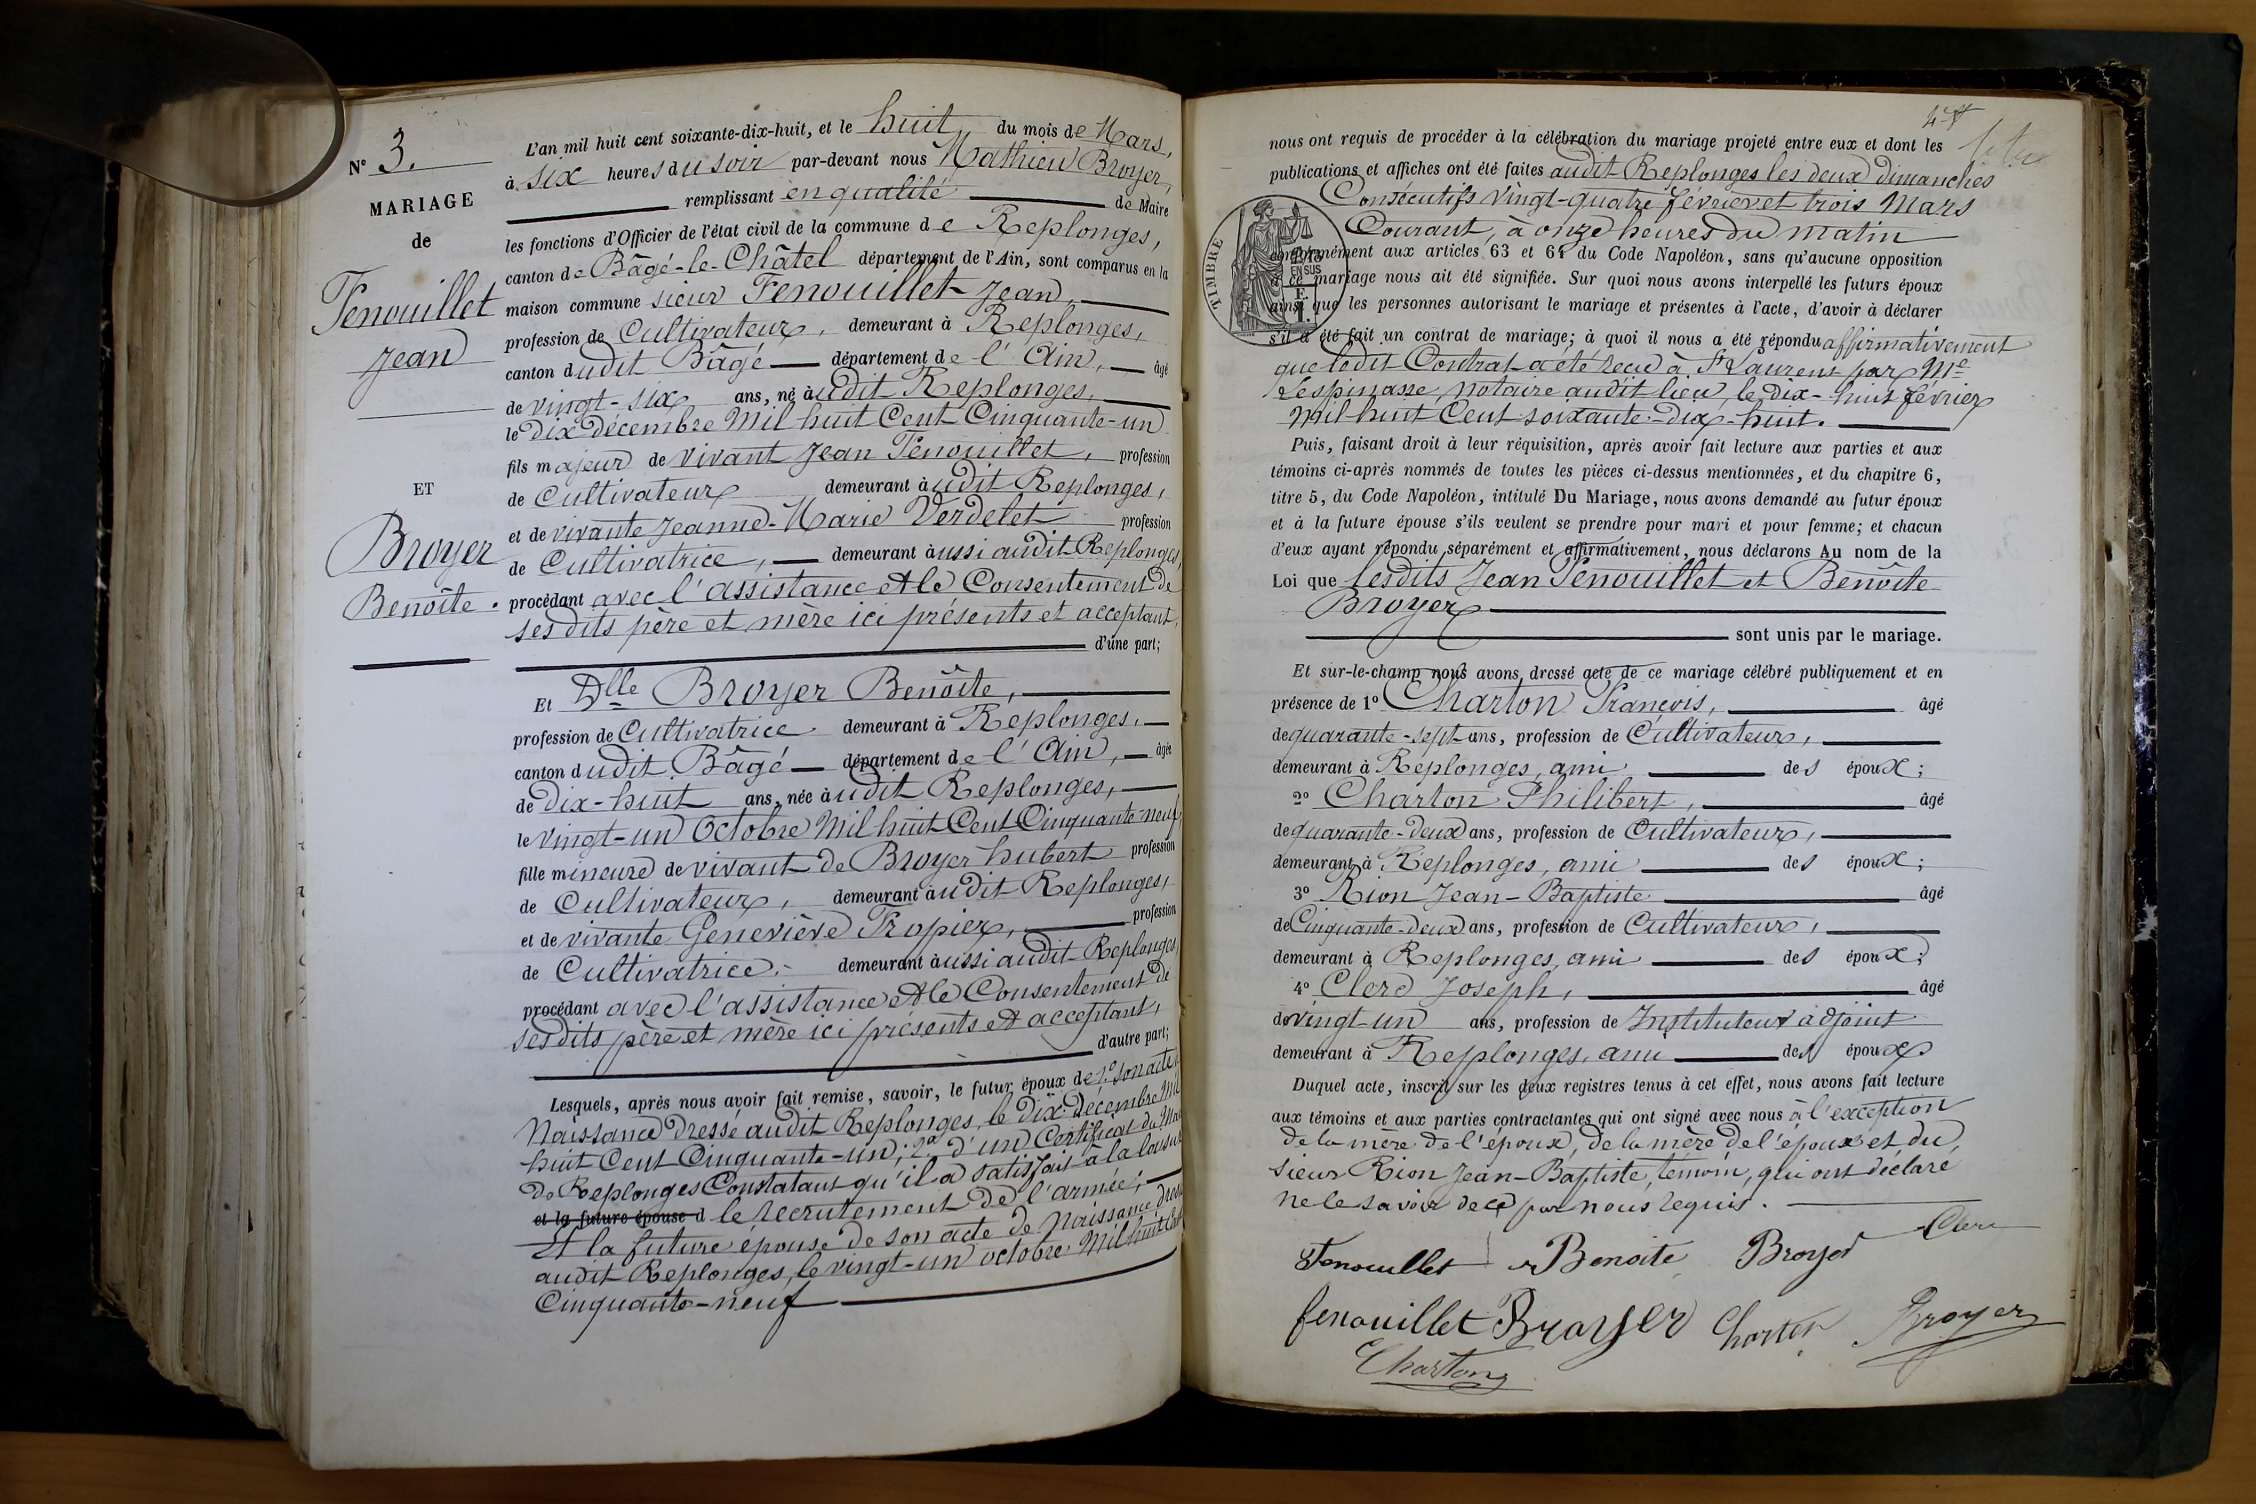 N° 3.
MARIAGE
de
Fenouillet
Jean
ET
Broyer
Benoîte.
L'an mil huit cent soixante-dix-huit, et le huit du mois de Mars,
à six heures du soir par-devant nous Mathieu Broyer,
remplissant en qualité de Maire
les fonctions d'Officier de l'état civil de la commune de Replonges,
canton de Bâgé-le-Châtel département de l'Ain, sont comparus en la
maison commune sieur Fenouillet Jean,
profession de Cultivateur, demeurant à Replonges,
canton dudit Bâgé département de l'Ain, âgé
de vingt-six ans, né audit Replonges,
le dix décembre Mil huit Cent Cinquante-un
fils majeur de vivant Jean Fenouillet, profession
de Cultivateur demeurant audit Replonges,
et de vivante Jeanne-Marie Verdelet profession
de Cultivatrice, demeurant aussi audit Replonges,
procédant avec l'assistance et le Consentement de
ses dits père et mère ici présents et acceptant,
d'une part;
Et Dlle Broyer Benoîte,
profession de Cultivatrice demeurant à Replonges,
canton dudit Bâgé département de l'Ain, âgée
de dix-huit ans, née audit Replonges,
le vingt-un Octobre Mil huit Cent Cinquante neuf,
fille mineure de vivant de Broyer hubert profession
de Cultivateur, demeurant audit Replonges,
et de vivante Geneviève Tropier, profession
de Cultivatrice, demeurant aussi audit Replonges,
procédant avec l'assistance et le Consentement de
sesdits père et mère ici présents et acceptant,
d'autre part;
Lesquels, après nous avoir fait remise, savoir, le futur époux de 1° son acte
Naissance dressé audit Replonges, le dix décembre Mil
huit Cent Cinquante-un; 2° d'un Certificat du Mai
de Replonges Constatant qu'il a satisfait à la loi sur
et la future épouse d le recrutement de l'armée;
Et la future épouse de son acte de Naissance dressé
audit Replonges, le vingt-un octobre Mil huit Cent
Cinquante-neuf
nous ont requis de procéder à la célébration du mariage projeté entre eux et dont les
publications et affiches ont été faites audit Replonges les deux dimanches
Consécutifs vingt-quatre février et trois Mars
Courant, à onze heures du matin
TIMBRE
EN SUS
conformément aux articles 63 et 64 du Code Napoléon, sans qu'aucune opposition
à ce mariage nous ait été signifiée. Sur quoi nous avons interpellé les futurs époux
ainsi que les personnes autorisant le mariage et présentes à l'acte, d'avoir à déclarer
s'il a été fait un contrat de mariage; à quoi il nous a été répondu affirmativement
que ledit Contrat a été reçu à St Laurent par Me
Lespinasse, notaire audit lieu, le dix-huit février
Mil huit Cent soixante-dix-huit.
Puis, faisant droit à leur réquisition, après avoir fait lecture aux parties et aux
témoins ci-après nommés de toutes les pièces ci-dessus mentionnées, et du chapitre 6,
titre 5, du Code Napoléon, intitulé Du Mariage, nous avons demandé au futur époux
et à la future épouse s'ils veulent se prendre pour mari et pour femme; et chacun
d'eux ayant répondu séparément et affirmativement, nous déclarons Au nom de la
Loi que lesdits Jean Fenouillet et Benoîte
Broyer
sont unis par le mariage.
Et sur-le-champ nous avons dressé acte de ce mariage célébré publiquement et en
présence de 1° Charton François, âgé
de quarante-sept ans, profession de Cultivateur,
demeurant à Replonges, ami des époux;
2° Charton Philibert, âgé
de quarante-deux ans, profession de Cultivateur,
demeurant à Replonges, ami des époux;
3° Rion Jean-Baptiste âgé
de Cinquante-deux ans, profession de Cultivateur,
demeurant à Replonges, ami des époux;
4° Clerc Joseph, âgé
de vingt-un ans, profession de Instituteur adjoint
demeurant à Replonges, ami des époux
Duquel acte, inscrit sur les deux registres tenus à cet effet, nous avons fait lecture
aux témoins et aux parties contractantes qui ont signé avec nous à l'exception
de la mère de l'époux, de la mère de l'épouse et du
sieur Rion Jean-Baptiste, témoin, qui ont déclaré
ne le savoir de ce par nous requis.
Fenouillet Benoite Broyer Clerc
fenouillet Broyer Charton Broyer
Charton